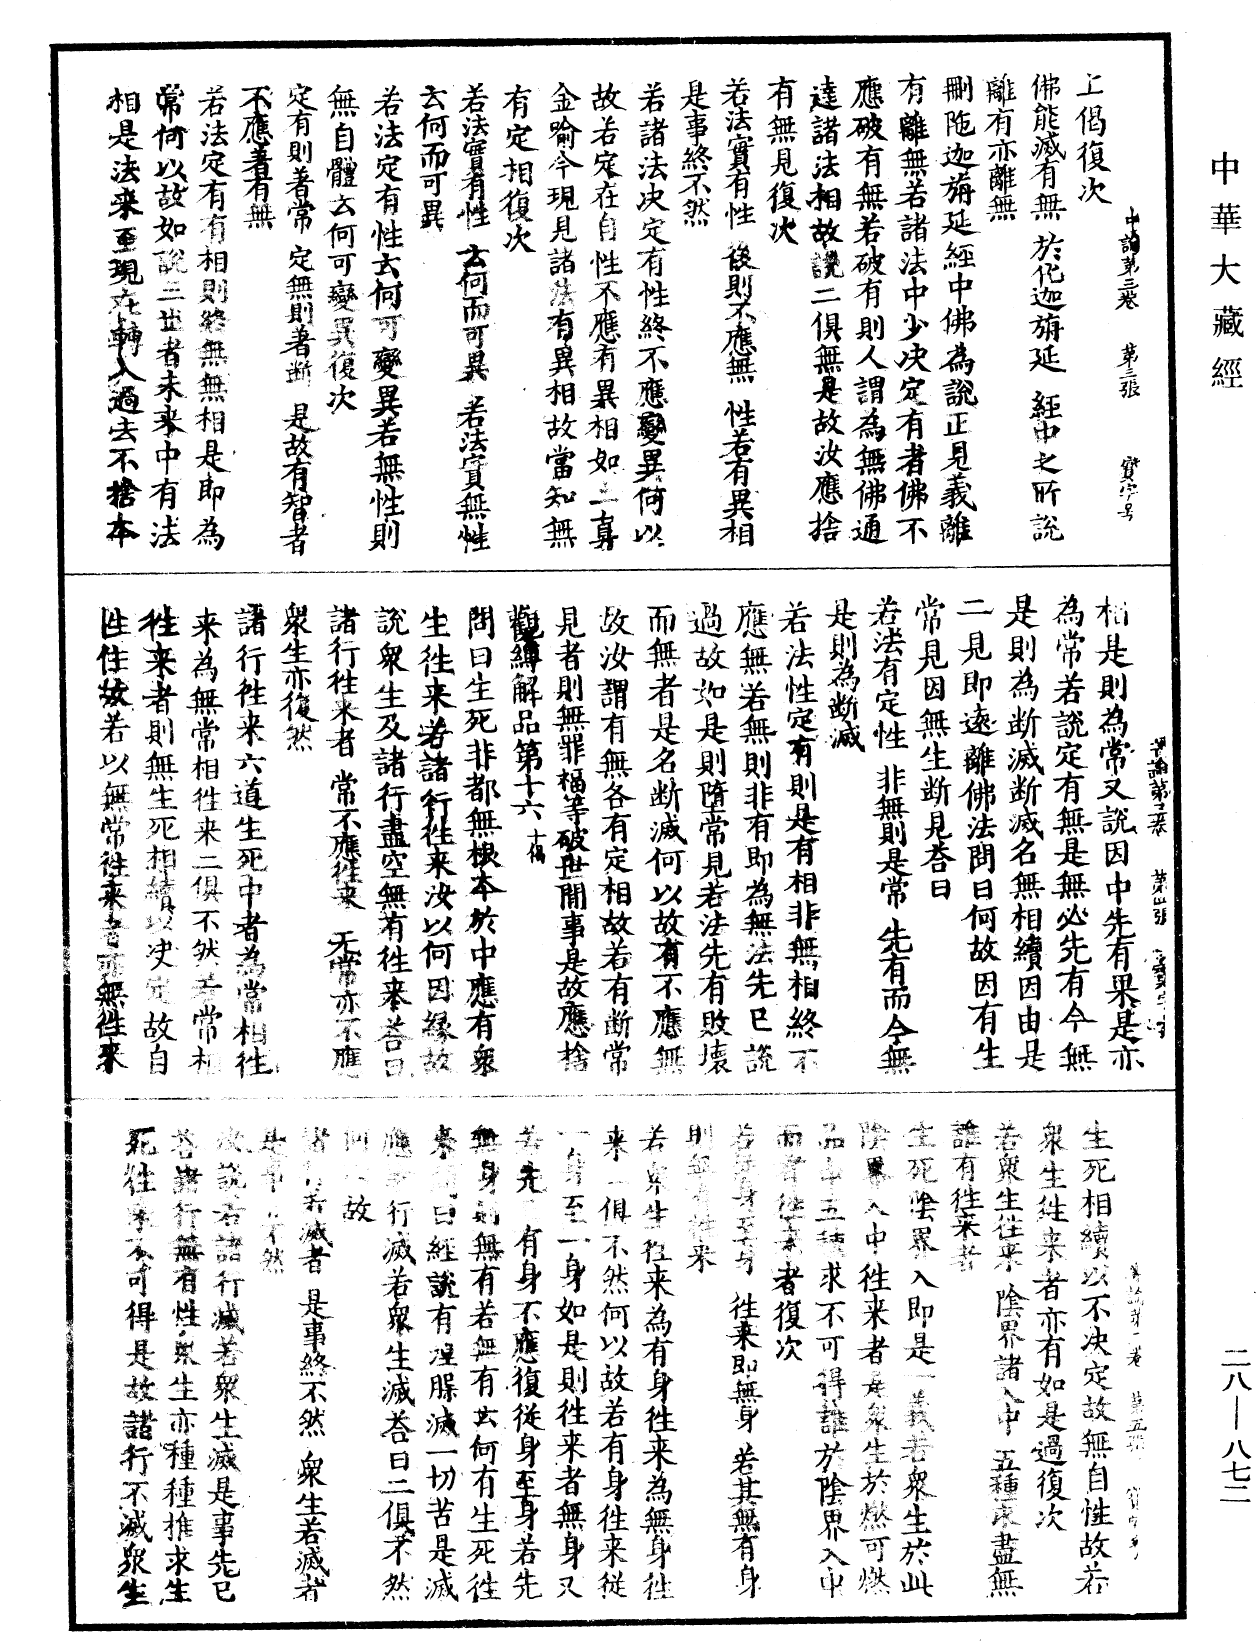 中華大藏經
上偈復次
佛能滅有無　於化迦旃延　經中之所說
離有亦離無
刪陁迦旃延經中佛為說正見義離
有離無若諸法中少決定有者佛不
應破有無若破有則人謂為無佛通
達諸法相故說二俱無是故汝應捨
有無見復次
若法實有性　後則不應無　性若有異相
是事終不然
若諸法决定有性終不應變異何以
故若定在自性不應有異相如上真
金喻今現見諸法有異相故當知無
有定相復次
若法實有性　云何而可異　若法實無性
云何而可異
若法定有性云何可變異若無性則
無自體云何可變異復次
定有則著常　定無則著斷　是故有智者
不應著有無
若法定有有相則終無無相是即為
常何以故如說三世者未來中有法
相是法来至現在轉入過去不捨本
中論第三卷　第三張　寶字号
相是則為常又說因中先有果是亦
為常若說定有無是無必先有今無
是則為断滅断滅名無相續因由是
二見即遠離佛法問曰何故因有生
常見因無生断見荅曰
若法有定性　非無則是常　先有而今無
是則為断滅
若法性定有則是有相非無相終不
應無若無則非有即為無法先已說
過故如是則墮常見若法先有敗壞
而無者是名断滅何以故有不應無
故汝謂有無各有定相故若有断常
見者則無罪福等破世間事是故應捨
觀縛解品第十六　十偈
問曰生死非都無根本於中應有衆
生徃来若諸行徃来汝以何因緣故
說衆生及諸行盡空無有徃来荅曰
諸行徃来者　常不應徃来　无常亦不應
衆生亦復然
諸行徃来六道生死中者為常相徃
来為無常相徃来二俱不然若常相
徃来者則無生死相續以决定故自
性住故若以無常徃来者亦無徃来
中論第三卷　第四張　寶字号
生死相續以不决定故無自性故若
衆生徃来者亦有如是過復次
若衆生徃来　陰界諸入中　五種求盡無
誰有徃来者
生死陰界入即是一義若衆生於此
陰界入中徃来者是衆生於燃可燃
品中五種求不可得誰於陰界入中
而有徃来者復次
若從身至身　徃来即無身　若其無有身
則無有徃来
若衆生徃来為有身徃来為無身徃
来二俱不然何以故若有身徃来従
一身至一身如是則徃来者無身又
若先已有身不應復従身至身若先
無身則無有若無有云何有生死徃
来問曰經說有涅槃滅一切苦是滅
應諸行滅若衆生滅荅曰二俱不然
何以故
諸行若滅者　是事終不然　衆生若滅者
是事亦不然
汝說若諸行滅若衆生滅是事先已
荅諸行無有性衆生亦種種推求生
死徃来不可得是故諸行不滅衆生
第五張
二八—八七二